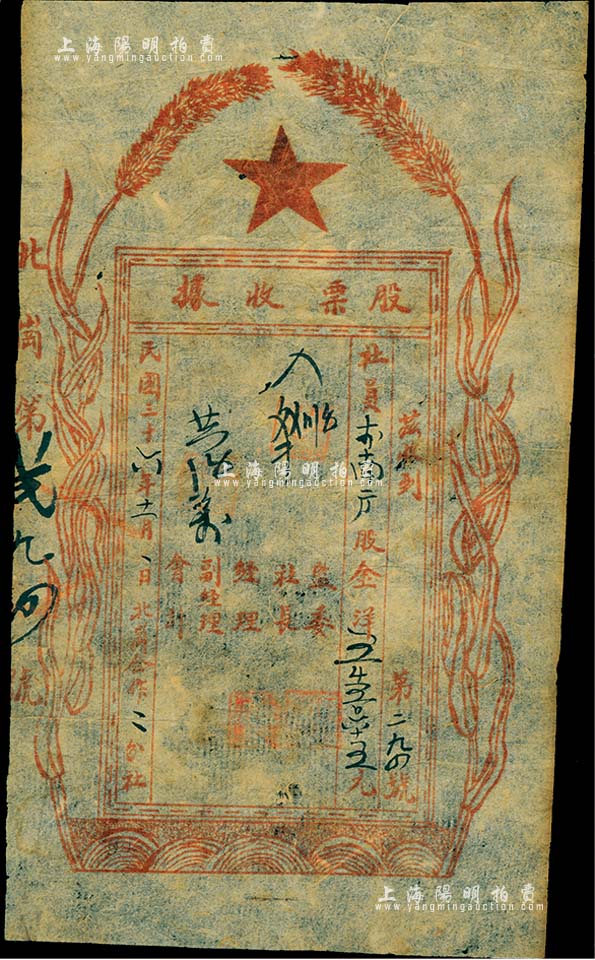 上海陽明拍賣
www.yangmingauction.com
股票收據
茲收到
第二九四號
社員
股金洋
五
元
監委
社長
經理
副經理
會計
民國三十六年十一月、日北崗合作二分社
北崗第
弍九四
號
上海陽明拍賣
www.yangmingauction.com
上海陽明拍賣
www.yangmingauction.com